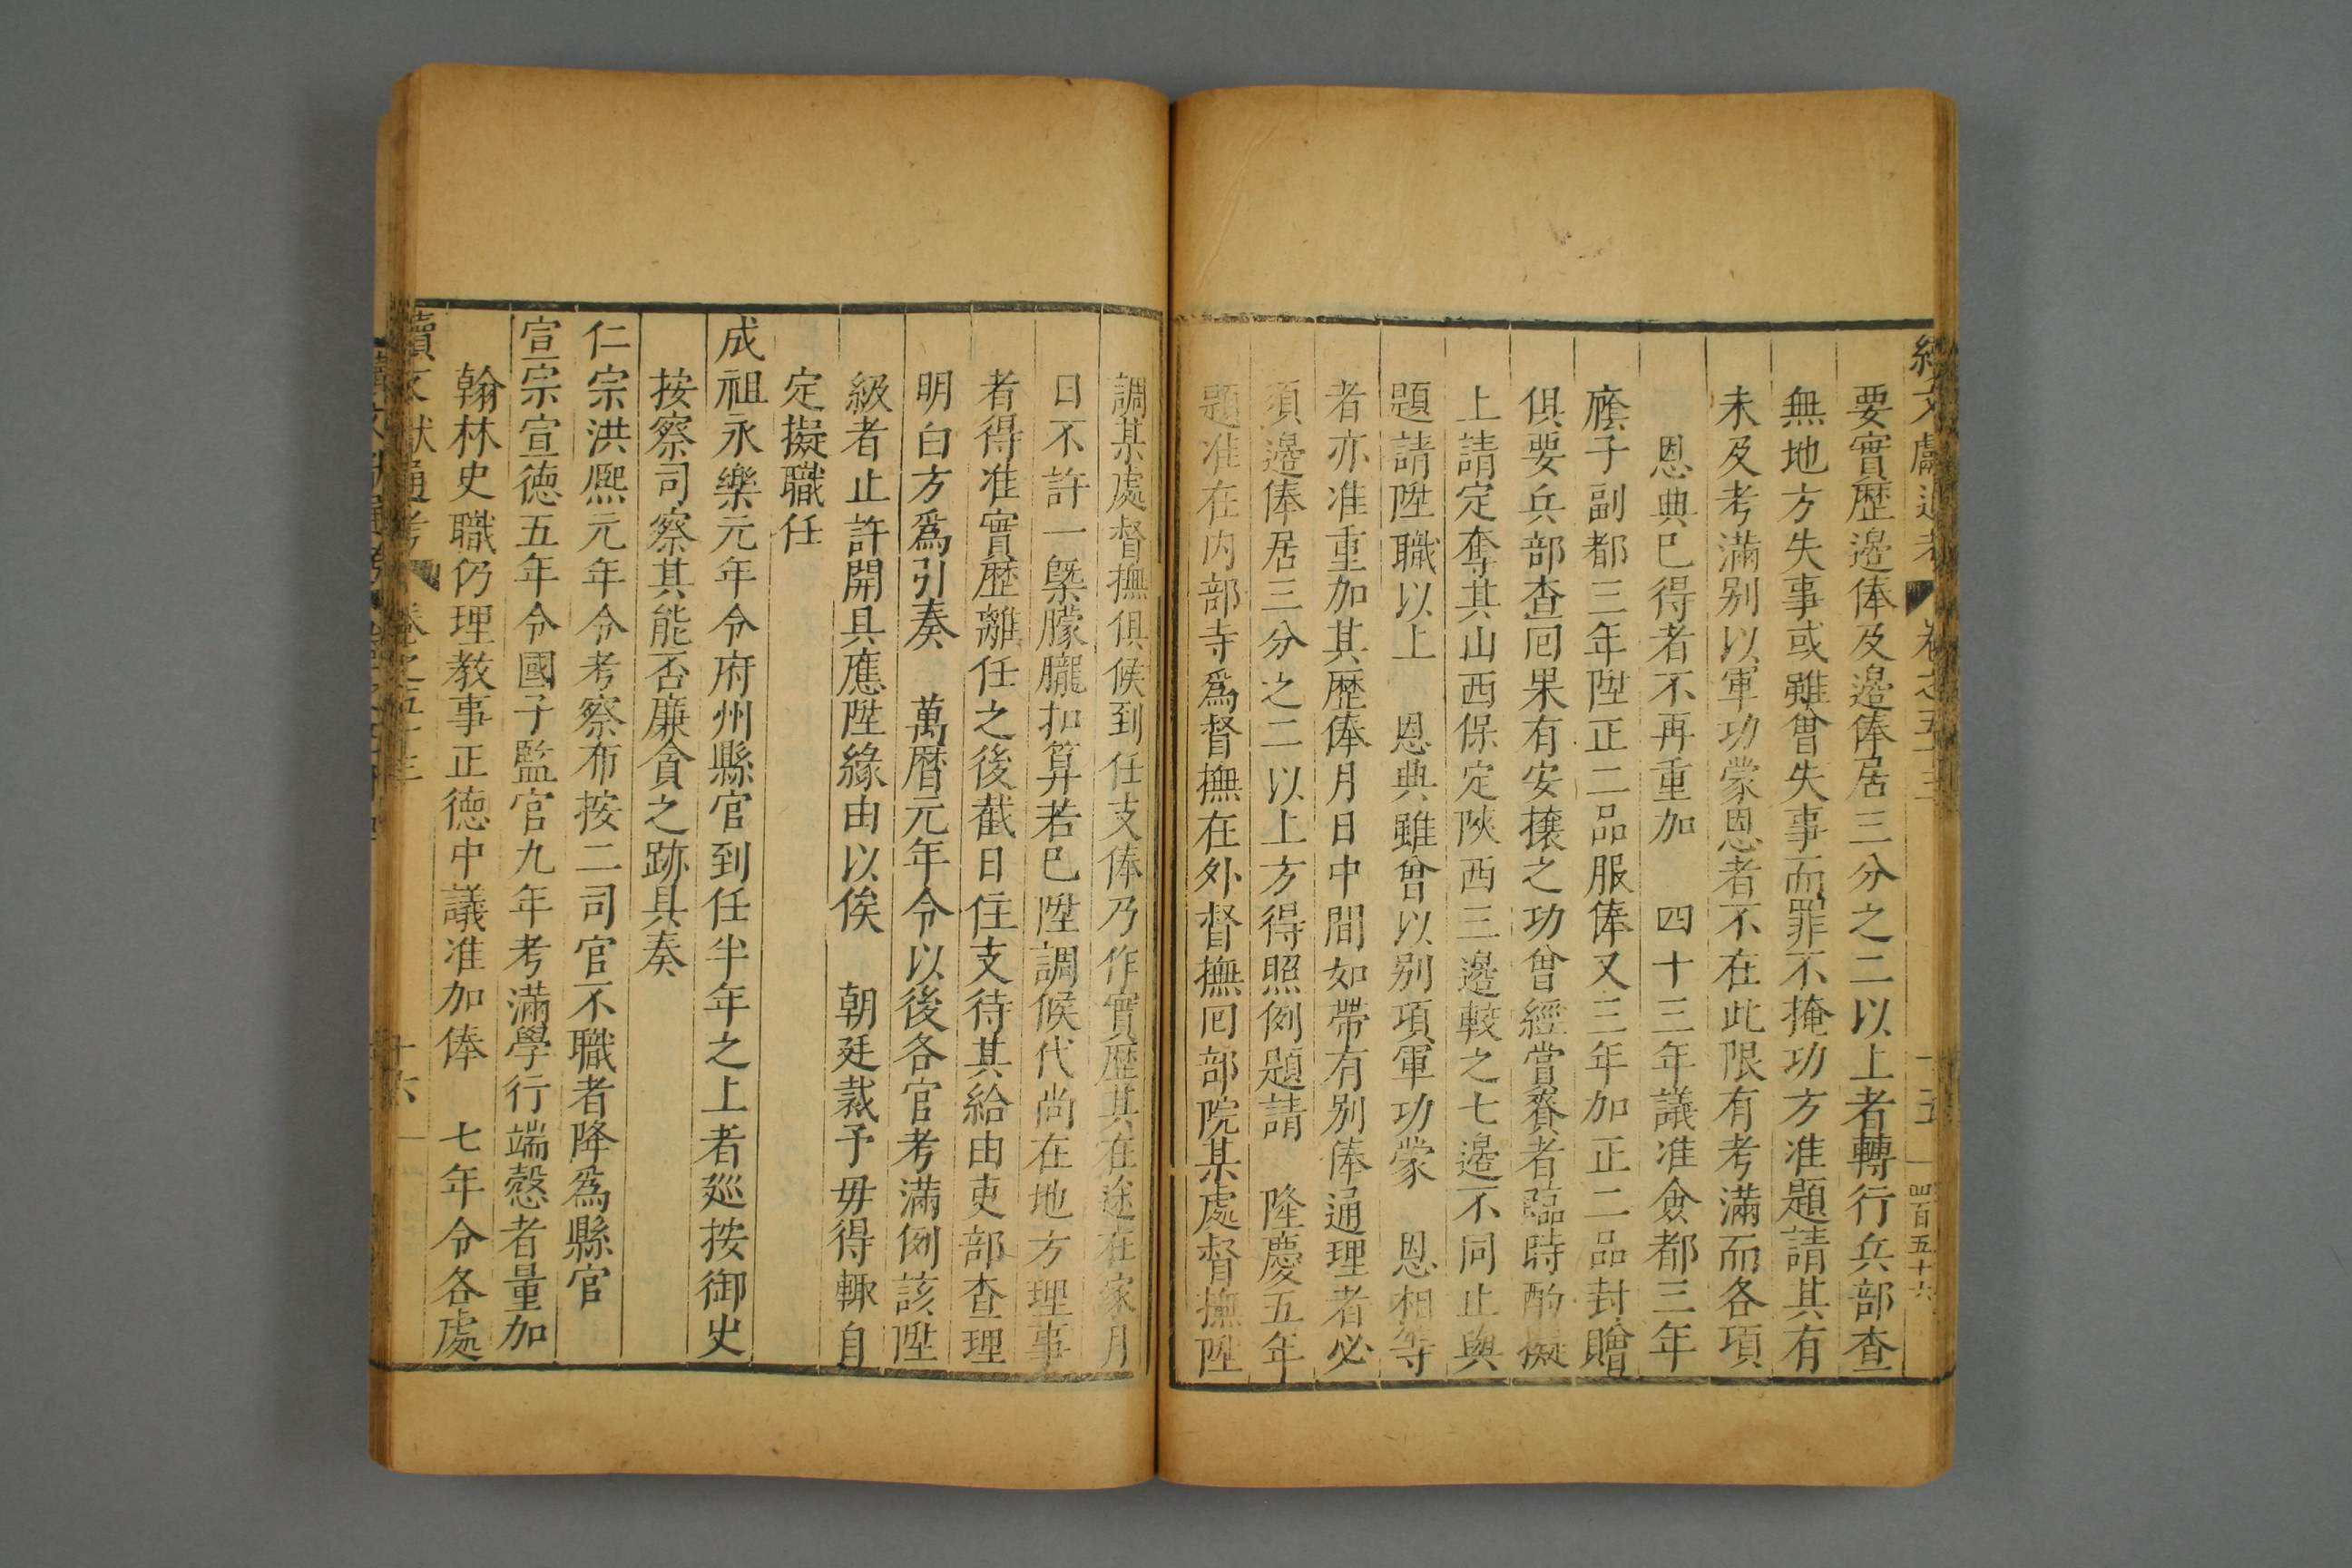 續文獻通考 卷之五十三 十五 四百五十六
要實歷邉俸及邉俸居三分之二以上者轉行兵部查
無地方失事或雖曾失事而罪不掩功方准題請其有
未及考滿别以軍功蒙恩者不在此限有考滿而各項
恩典已得者不再重加 四十三年議准僉都三年
廕子副都三年陞正二品服俸又三年加正二品封贈
俱要兵部查囘果有安攘之功曾經賞賚者臨時酌擬
上請定奪其山西保定陝西三邉較之七邉不同止與
題請陞職以上 恩典雖曾以别項軍功蒙 恩相等
者亦准重加其歴俸月日中間如帶有别俸通理者必
須邉俸居三分之二以上方得照例題請 隆慶五年
題准在内部寺爲督撫在外督撫囘部院某處督撫陞
調某處督撫俱候到任支俸乃作實歷其在途在家月
日不許一槩朦朧扣算若已陞調候代尚在地方理事
者得准實歷離任之後截日住支待其給由吏部查理
明白方爲引奏 萬曆元年令以後各官考滿例該陞
級者止許開具應陞緣由以俟 朝廷裁予毋得輙自
定擬職任
成祖永樂元年令府州縣官到任半年之上者廵按御史
按察司察其能否廉貪之跡具奏
仁宗洪熈元年令考察布按二司官不職者降爲縣官
宣宗宣德五年令國子監官九年考滿學行端慤者量加
翰林史職仍理教事正德中議准加俸 七年令各處
續文獻通考 卷之五十三 十六